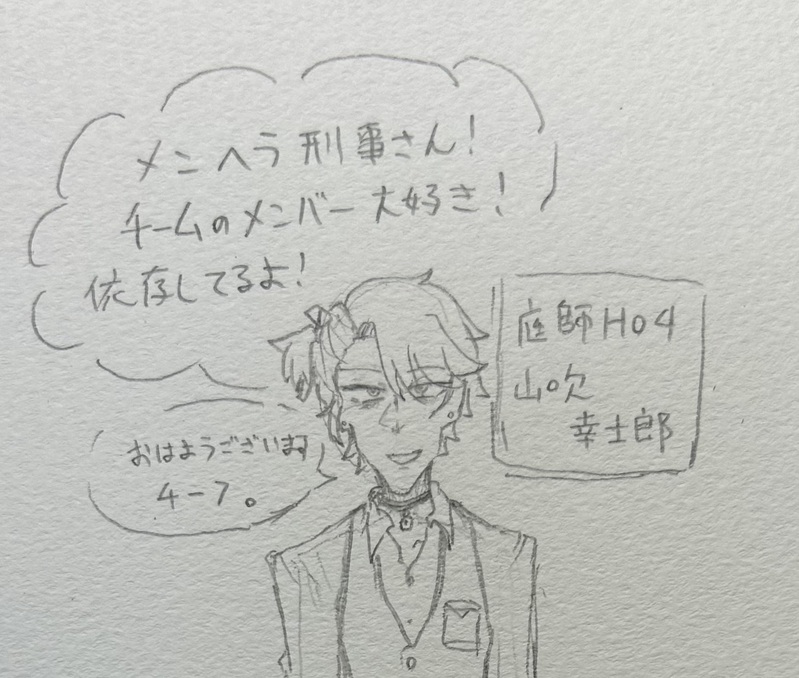 メンヘラ刑事さん!
チームのメンバー大好き!
依存してるよ!
庭師HO4
山吹
幸士郎
おはようございます
4-7。